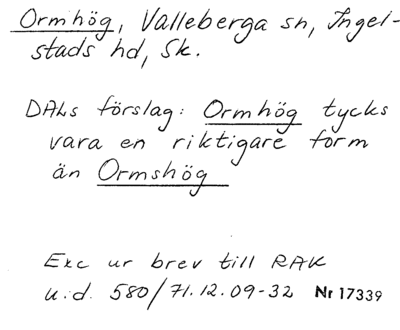 Ormhög, Valleberga sn, Ingel-
stads hd, Sk.
DALs förslag: Ormhög tycks
vara en riktigare form
än Ormshög
Exc ur brev till RAK
u.d. 580/71.12.09-32 Nr 17339